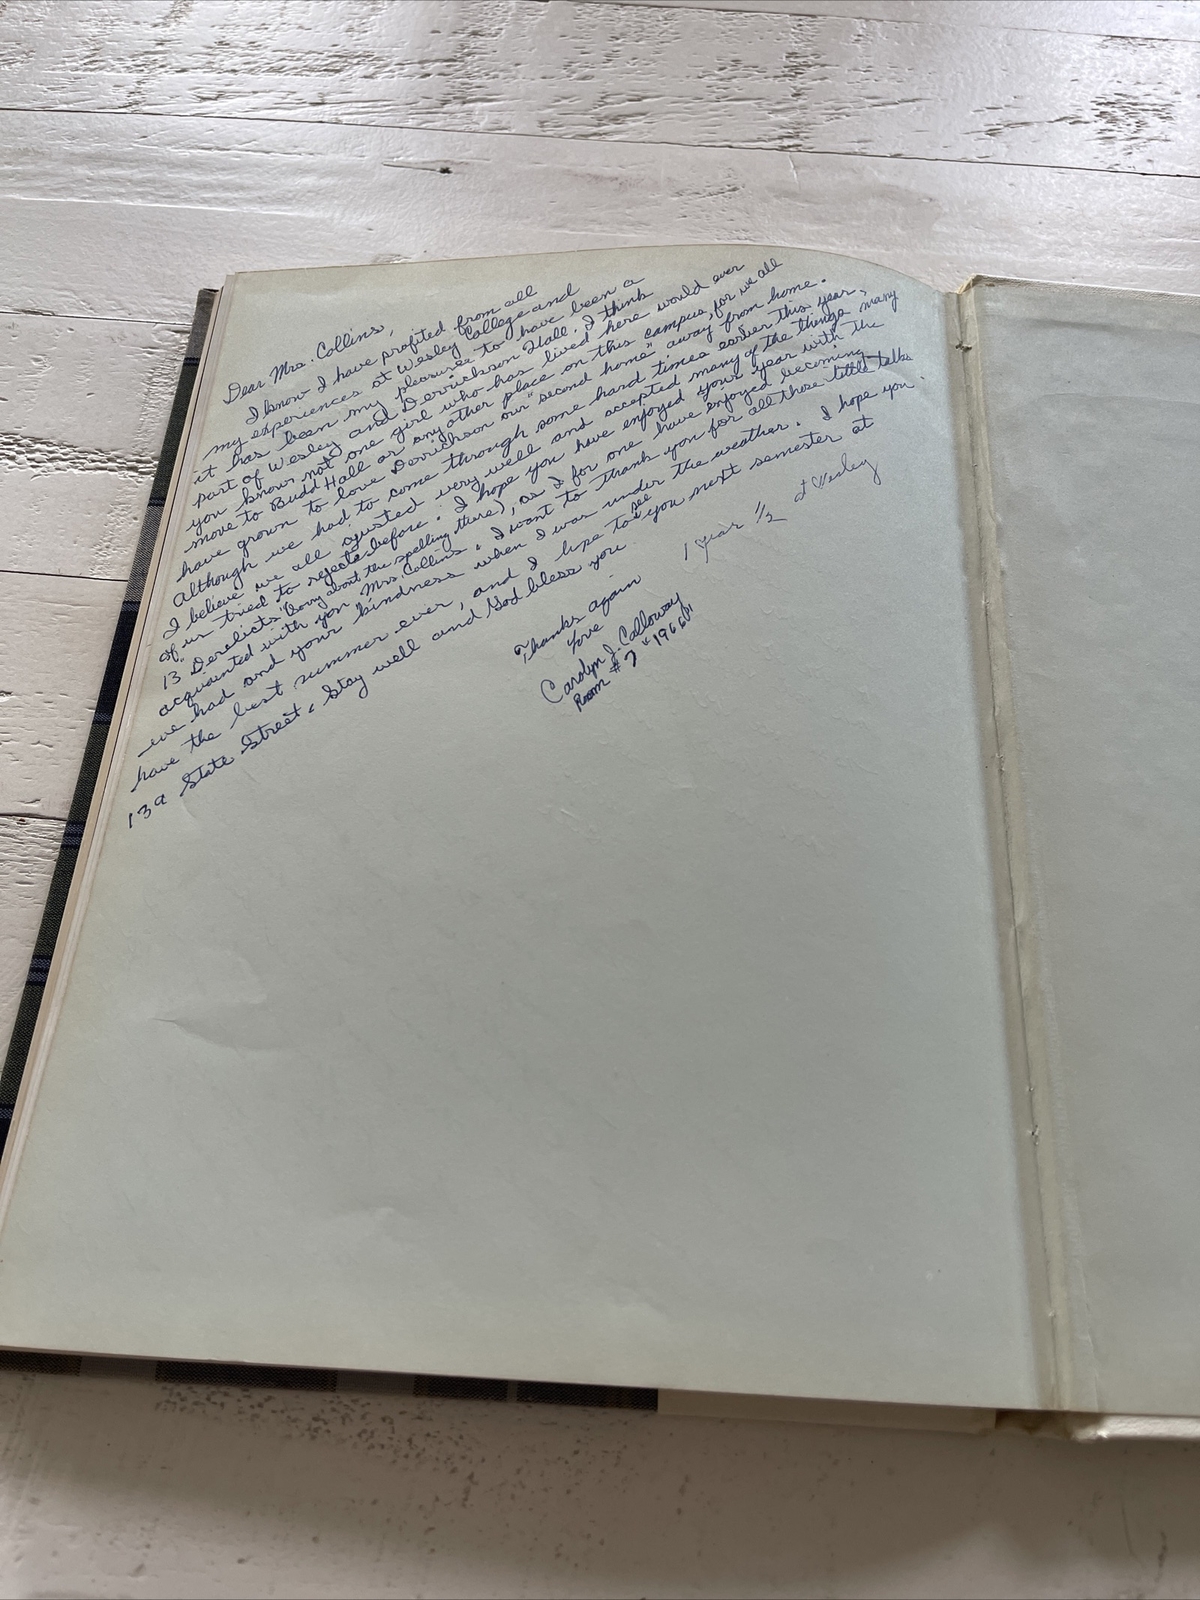 Dear Mrs. Collins,
I know I have profited from all
my experiences at Wesley College and
it has been my pleasure to have been a
part of Wesley and Derrickson Hall. I think
you know not one girl who has lived here would ever
move to Budd Hall or any other place on this campus, for we all
have grown to love Derrickson our "second home" away from home.
Although we had to come through some hard times earlier this year,
I believe we all ajusted very well and accepted many of the things many
of us tried to reject before. I hope you have enjoyed your year with the
13 "Derelicts" (sorry about the spelling there), as I for one have enjoyed becoming
acquainted with you Mrs. Collins. I want to thank you for all those little talks
we had and your kindness when I was under the weather. I hope you
have the best summer ever, and I hope to see you next semester at
13a State Street. Stay well and God bless you
1 year 1/2 at Wesley
Thanks again
Love
Carolyn J. Calloway
Room #7 "1966"